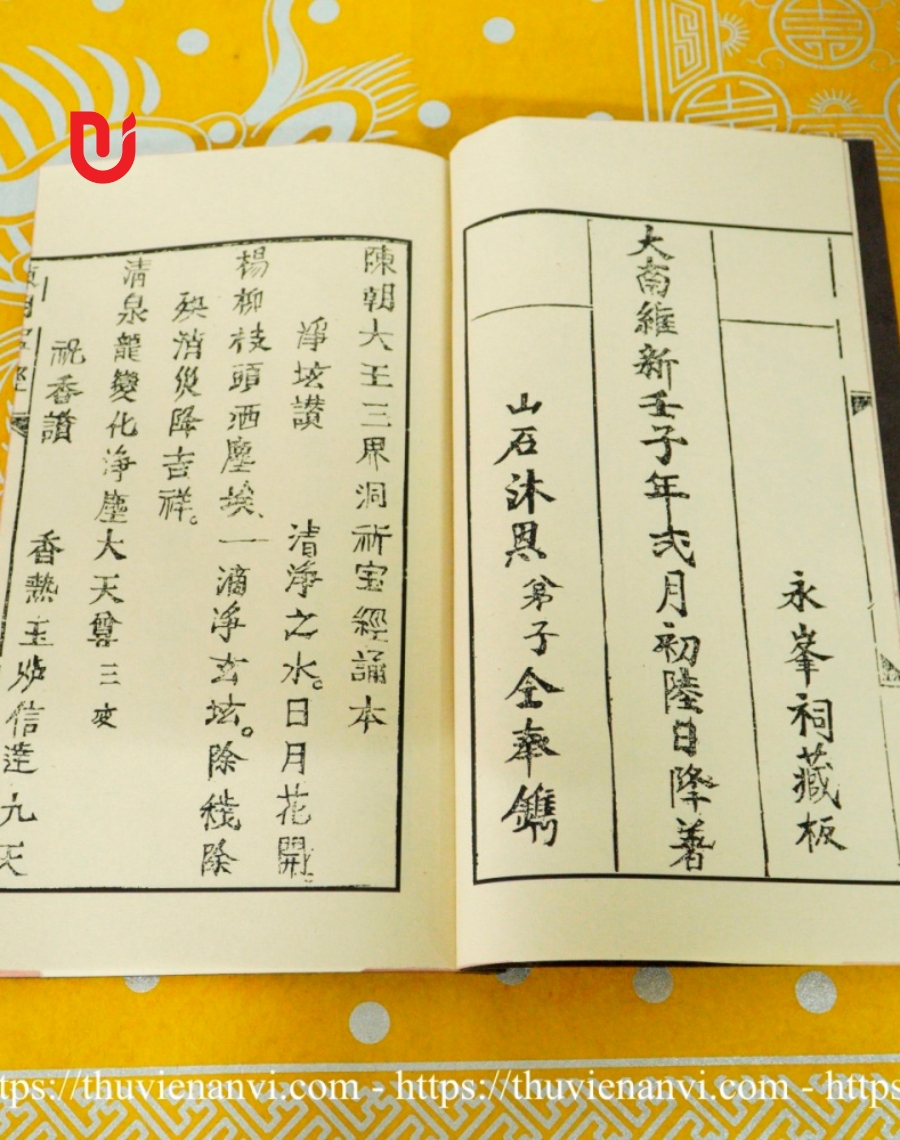 永峯祠藏板
大南維新壬子年弍月初陸日降著
山石沐恩弟子仝奉鐫
陳朝大王三界洞祈宝經誦本
淨坛讃 清淨之水。日月花開。
楊柳枝頭洒塵埃、一滴淨玄坛。除穢除
殃消災降吉祥。
清泉龍變化淨塵大天尊三变
祝香讃 香熱玉炉信達九天
https://thuvienanvi.com - https://thuvienanvi.com - https